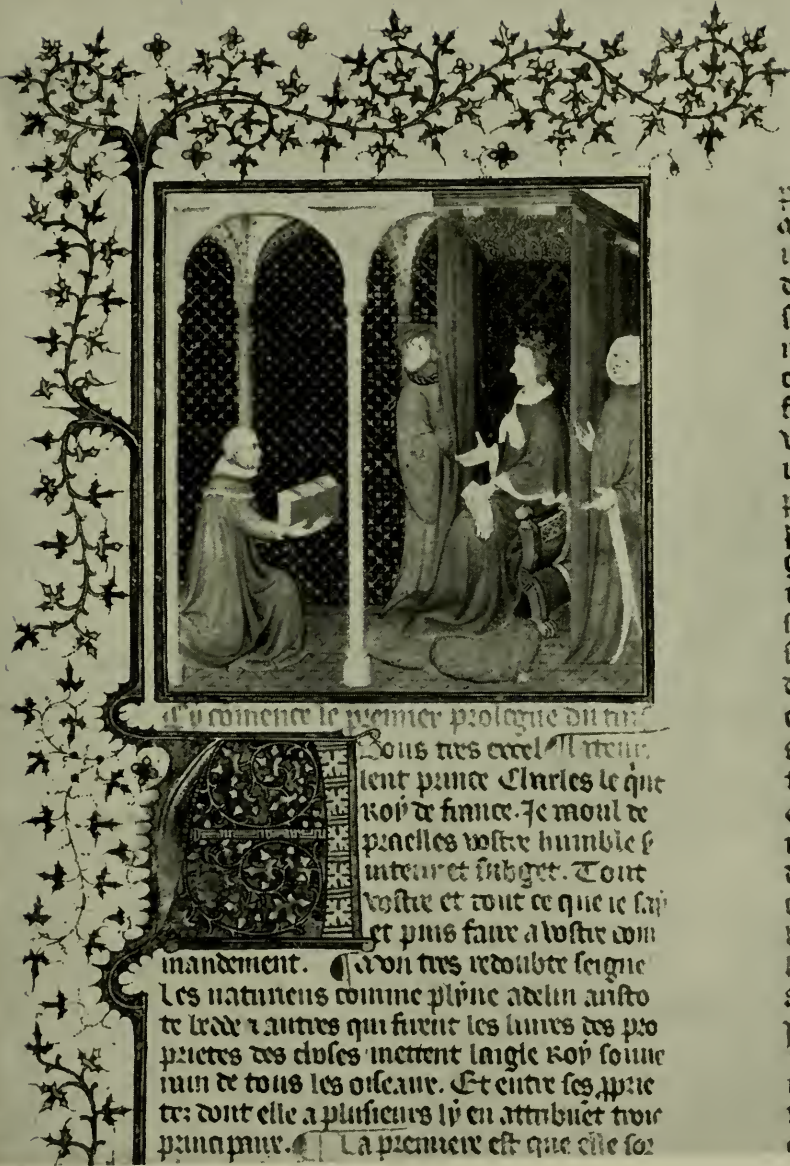 Cy comence le premier prologue du
ous tres excel
lent prince Charles le qint
Roy de france. Je raoul de
praelles vostre humble s
uiteur et subget. Tout
vostre et tout ce que ie say
et puis faire a vostre com
mandement. Mon tres redoubte seigne
Les naturiens comme plyne adelin aristo
te bede ⁊ autres qui firent les liures des pro
prietes des choses mettent laigle Roy souue
rain de tous les oiseaux. Et entre ses prie
tez dont elle a plusieurs ly en attribuet trois
principaux. La premiere est que elle sor